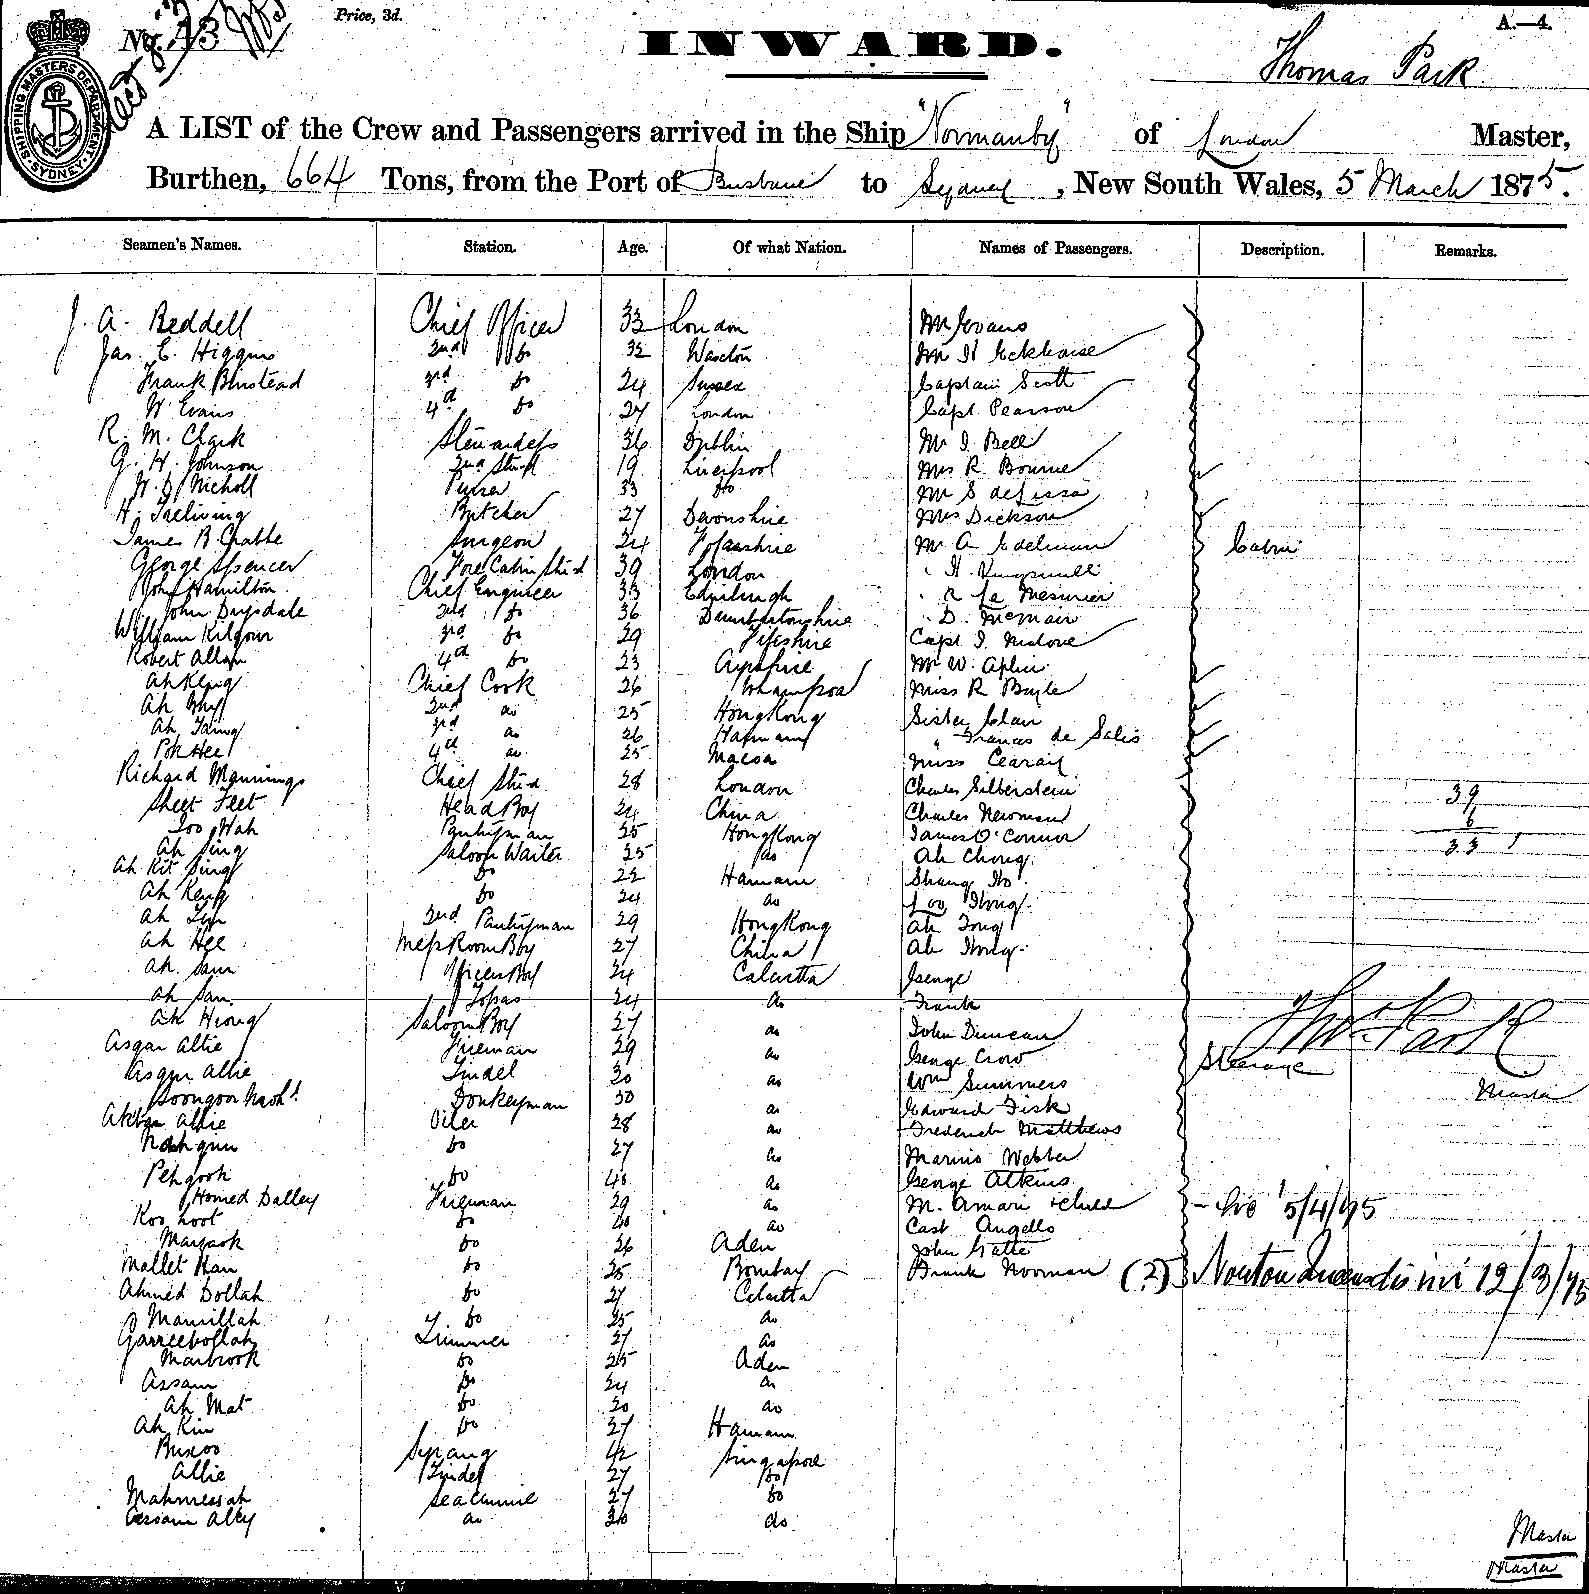 Price, 3d.
A.—4.
No. 73
INWARD.
Thomas Park
SHIPPING MASTERS DEPARTMENT SYDNEY
A LIST of the Crew and Passengers arrived in the Ship "Normanby" of London Master,
Burthen, 664 Tons, from the Port of Brisbane to Sydney, New South Wales, 5 March 1875.
Seamen's Names. Station. Age. Of what Nation. Names of Passengers. Description. Remarks.
J. A. Beddell Chief Officer 33 London Mr Evans
Jas. C. Higgins 2nd Do 32 Mr H Eckhouse
Frank Binstead 3rd Do 24 Sussex Captain Scott
W. Evans 4th Do 27 London Capt Pearson
R. M. Clark Stewardess 36 Dublin Mr I. Bell
G. H. Johnson 2nd Stwd 19 Liverpool Mrs R. Bourne
W. D. Nicholl Purser 33 Do Mr S de Lissa
H. Butcher 27 Devonshire Mrs Dickson
James B Chatte Surgeon 24 Mr A Edelman Cabin
George Spencer Fore Cabin Stwd 39 London " H.
John Hamilton Chief Engineer 33 Edinburgh " R Le Mesurier
John Drysdale 2nd Do 36 Dumbartonshire " D. McNair
William Kilgour 3rd Do 29 Fifeshire Capt I.
Robert Allan 4th Do 23 Ayrshire Mr W. Aplin
Ah Keng Chief Cook 26 Whampoa Miss R Boyle
Ah Why 2nd do 25 HongKong Sister Clare
Ah Taing 3rd do 26 " Frances de Sales
Pok Hee 4th do 25 Macoa Miss
Richard Mannings Chief Stwd. 28 London Charles Silberstein 39
Sheet Feet Head Boy 24 China Charles Newman 6
Loo Wah Pantryman 25 HongKong James O'Connor 33
Ah Sing Saloon Waiter 25 do Ah Chong
Ah Kit Sing Do 22 Hainam Shang
Ah Keng Do 24 do Loo
Ah 2nd Pantryman 29 HongKong Ah Fong
Ah Hee Mess Room Boy 27 China Ah
Ah Sam Officers Boy 24 Calcutta George
Ah San Topas 24 do Frank
Ah Hiong Saloon Boy 27 do John Duncan Thos Park
Asgar Allie Fireman 29 do George Crow Steerage
Asgur Allie Tindel 30 do Wm Summers Master
Donkeyman 30 do Edward Fisk
Akbar Allie Oiler 28 do Frederick Matthews
Do 27 do Marius Webber
Do 40 do George Atkins
Homed Dalley Fireman 29 do M. Amari & Child
Koo Do do Cast Angello
Do 26 Aden John
Mallet Han Do 25 Bombay Frank Norman (2) 12/3/75
Ahmed Dollah Do 27 Calcutta
Mamillah Do 25 do
Garreebollah Trimmer 27 do
Marbrook Do 25 Aden
Assam Do 24 do
Ah Mat Do 20 do
Ah Kin Do 27 Hainam
Buxoo Serang 42 Singapore
Allie Tindel 27 Do
Seacunnie 27 Do
Assam Alley do 30 do
Master
Master